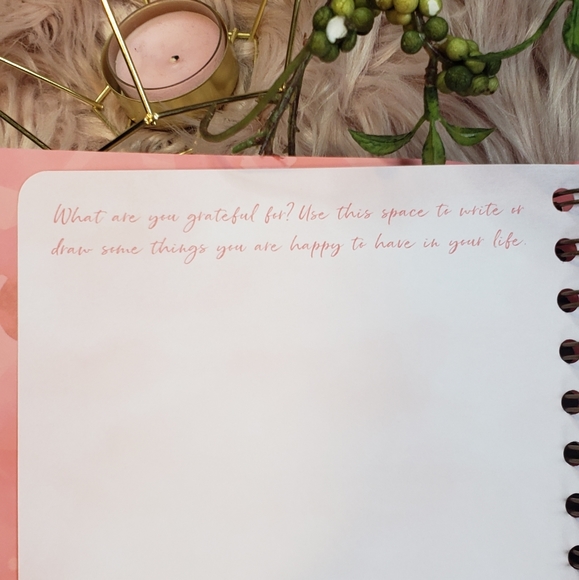 What are you grateful for? Use this space to write or
draw some things you are happy to have in your life.